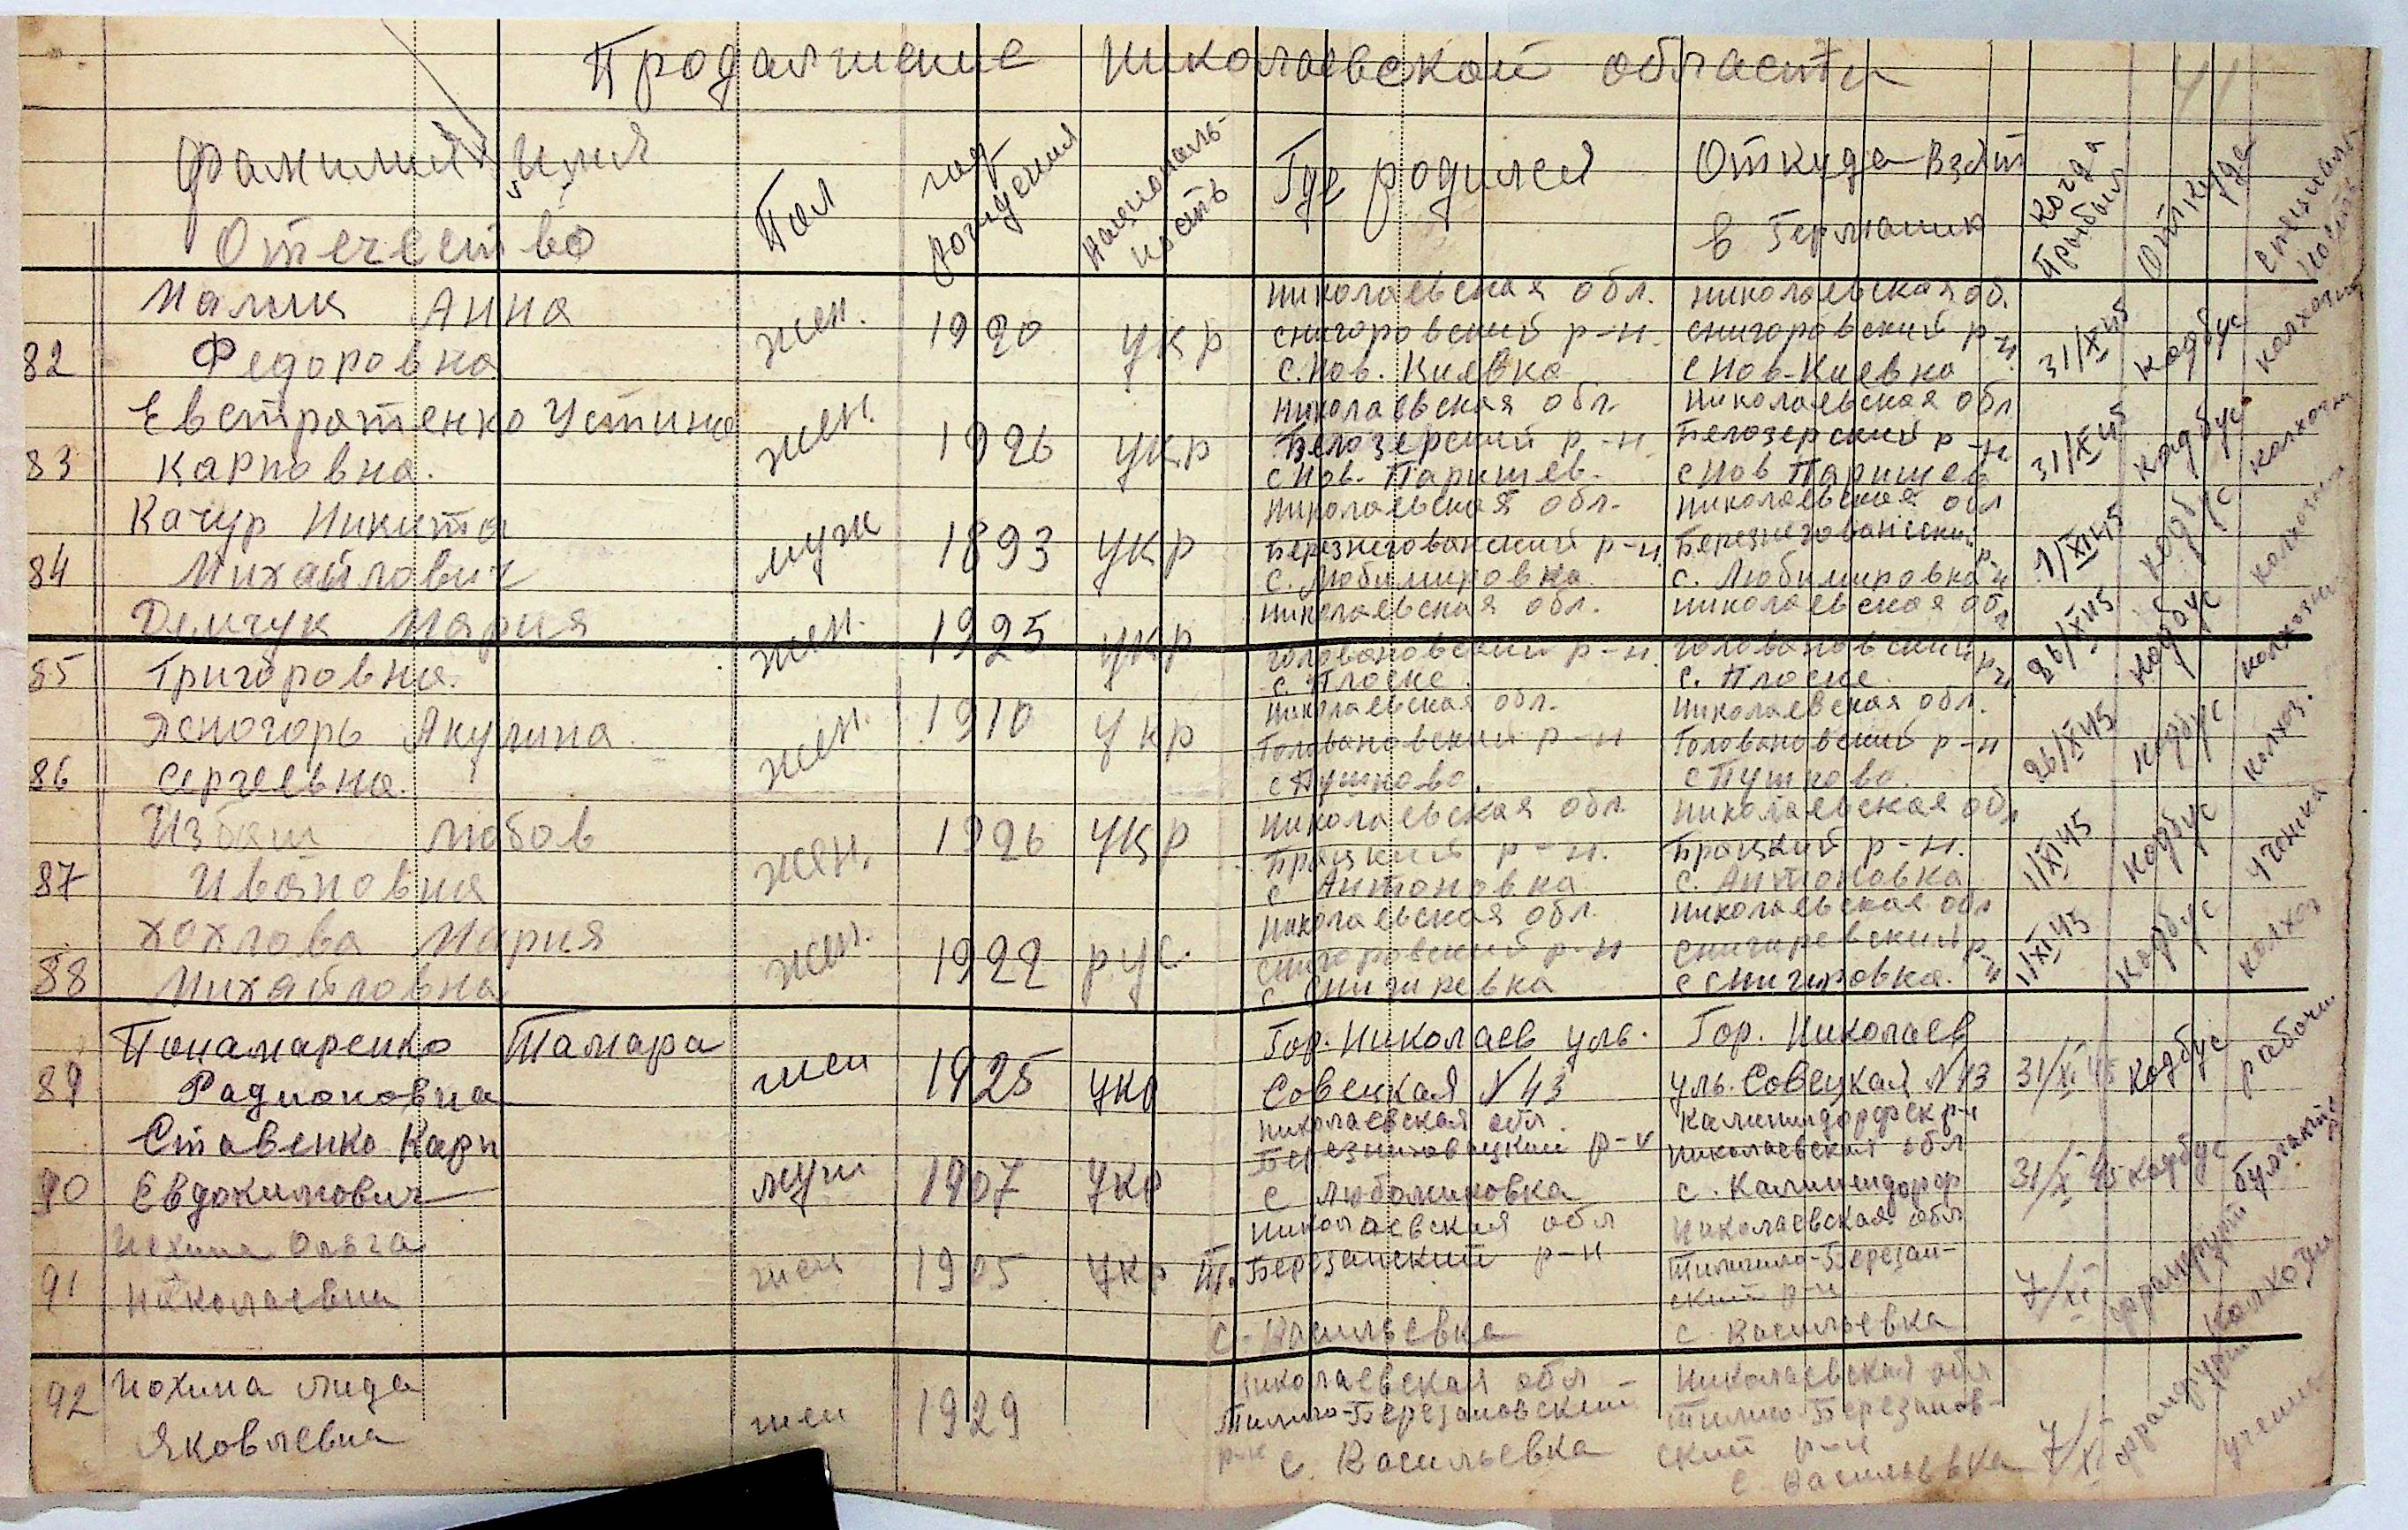 Продалжение Николаевской области
41
Фамилия, Имя
Отечество
Пол
год рождения
Национальность
Где родился
Откуда взят
в Германию
Когда прибыл
Откуда
Специальность
82 Малик Анна Федоровна жен. 1920 укр
Николаевская обл. Снигоровский р-н. с. Нов. Киевка
Николаевская об. Снигоровский р-н. с Нов-Киевка
31/X 45 кодбус
83 Евстратенко Устина Карповна. жен. 1926 укр
Николаевская обл. Белозерский р-н. с Нов.
Николаевская обл Белозерский р-н с Нов
31/X 45 кодбус
84 Качур Никита Михайлович муж 1893 укр
Николаевская обл. Березнегованский р-н. с. Любимировка.
Николаевская обл Березнегованский р-н с. Любимировка
1/XI 45 кодбус
85 Демчук Мария Григоровна. жен. 1925 укр
Николаевская обл. Головановский р-н. с. Плоске.
Николаевская обл Головановский р-н с. Плоске.
26/X 45 кодбус
86 Ясногорь Акулина Сергеевна. жен. 1910 укр
Николаевская обл. Головановский р-н с Пушково.
Николаевская обл. Головановский р-н с Пушково.
26/X 45 кодбус колхоз.
87 Избаш Любов Ивановна жен. 1926 укр
Николаевская обл Брацкий р-н. с Антоновка
Николаевская обл Брацкий р-н. с. Антоновка
1/XI 45 кодбус ученика
88 Хохлова Мария Михайловна жен. 1922 рус.
Николаевская обл. Снигоровский р-н с Снигиревка
Николаевская обл Снигиревский р-н с Снигировка.
1/XI 45 кодбус колхоз
89 Понамаренко Тамара Радионовна жен 1925 укр
Гор. Николаев уль. Совецкая № 43
Гор. Николаев уль. Совецкая № 43
31/XI 45 кодбус рабочи
90 Ставенко Карп Евдокимович муж 1907 укр
Николаевская обл. р-н с Любомировка
Николаевская обл с. Калининдорф
31/X 45 кодбус
91 Ольга Николаевна жен 1905 укр
Николаевская обл Т. Березанский р-н с. Васильевка
Николаевская обл Тилигило-Березанский р-н с. Васильевка
7/XI
92 Лида Яковлевна жен 1929
Николаевская обл р-н с. Васильевка
Николаевская обл р-н с. Васильевка
7/XI